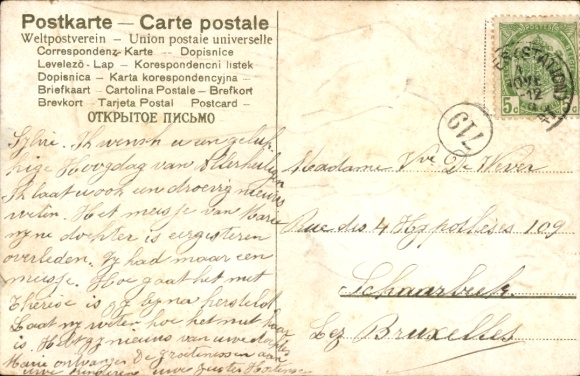 Postkarte — Carte postale
Weltpostverein — Union postale universelle
Correspondenz-Karte — Dopisnice
Levelező-Lap — Korespondencni listek
Dopisnica — Karta korespondencyjna —
Briefkaart — Cartolina Postale — Brefkort
Brevkort — Tarjeta Postal Postcard —
ОТКРЫТОЕ ПИСЬМО
Ik wensch u een geluk
kige Hoogdag van Allerheiligen
Ik laat u ook een droevig nieuws
weten. Het meisje van Marie
myne dochter is eergisteren
overleden. Zy had maar een
meisje. Hoe gaat het met
Therese is zy byna hersteld
Laat my weten hoe het met haar
is. Hebt gy nieuws van uwe dochter
Marie ontvangen De groetenissen aan
uwe kinderen uwe zuster Hortense
5c
719
Madame Vve De Wever
Rue des 4 Hypothèses 109
Schaarbeek
Lez Bruxelles